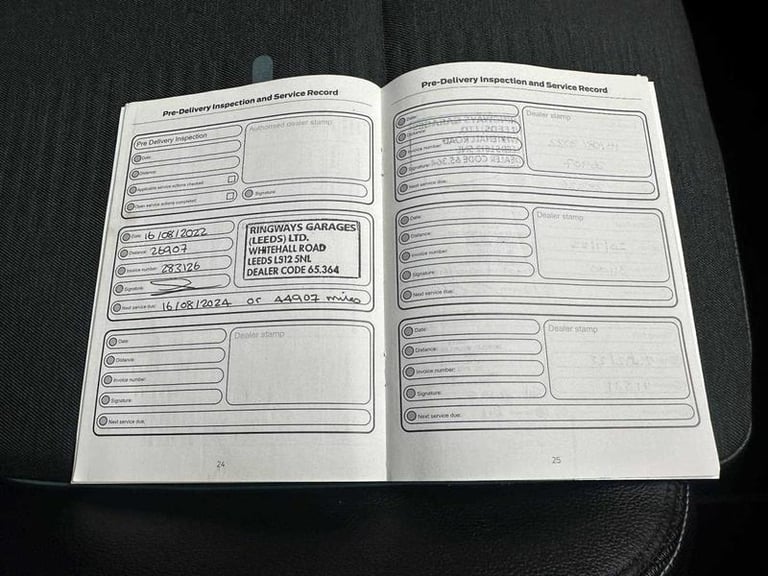 Pre-Delivery Inspection and Service Record
Pre Delivery Inspection
Authorised dealer stamp
Date:
Distance:
Applicable service actions checked:
Open service actions completed:
Signature:
Date: 16/08/2022
Distance: 26907
Invoice number: 283126
Signature:
RINGWAYS GARAGES
(LEEDS) LTD.
WHITEHALL ROAD
LEEDS LS12 5NL
DEALER CODE 65.364
Next service due: 16/08/2024 or 44907 miles
Date:
Distance:
Invoice number:
Signature:
Dealer stamp
Next service due:
24
Pre-Delivery Inspection and Service Record
Date:
Distance:
Invoice number:
Signature:
Dealer stamp
Next service due:
Date:
Distance:
Invoice number:
Signature:
Dealer stamp
Next service due:
Date:
Distance:
Invoice number:
Signature:
Dealer stamp
Next service due:
25